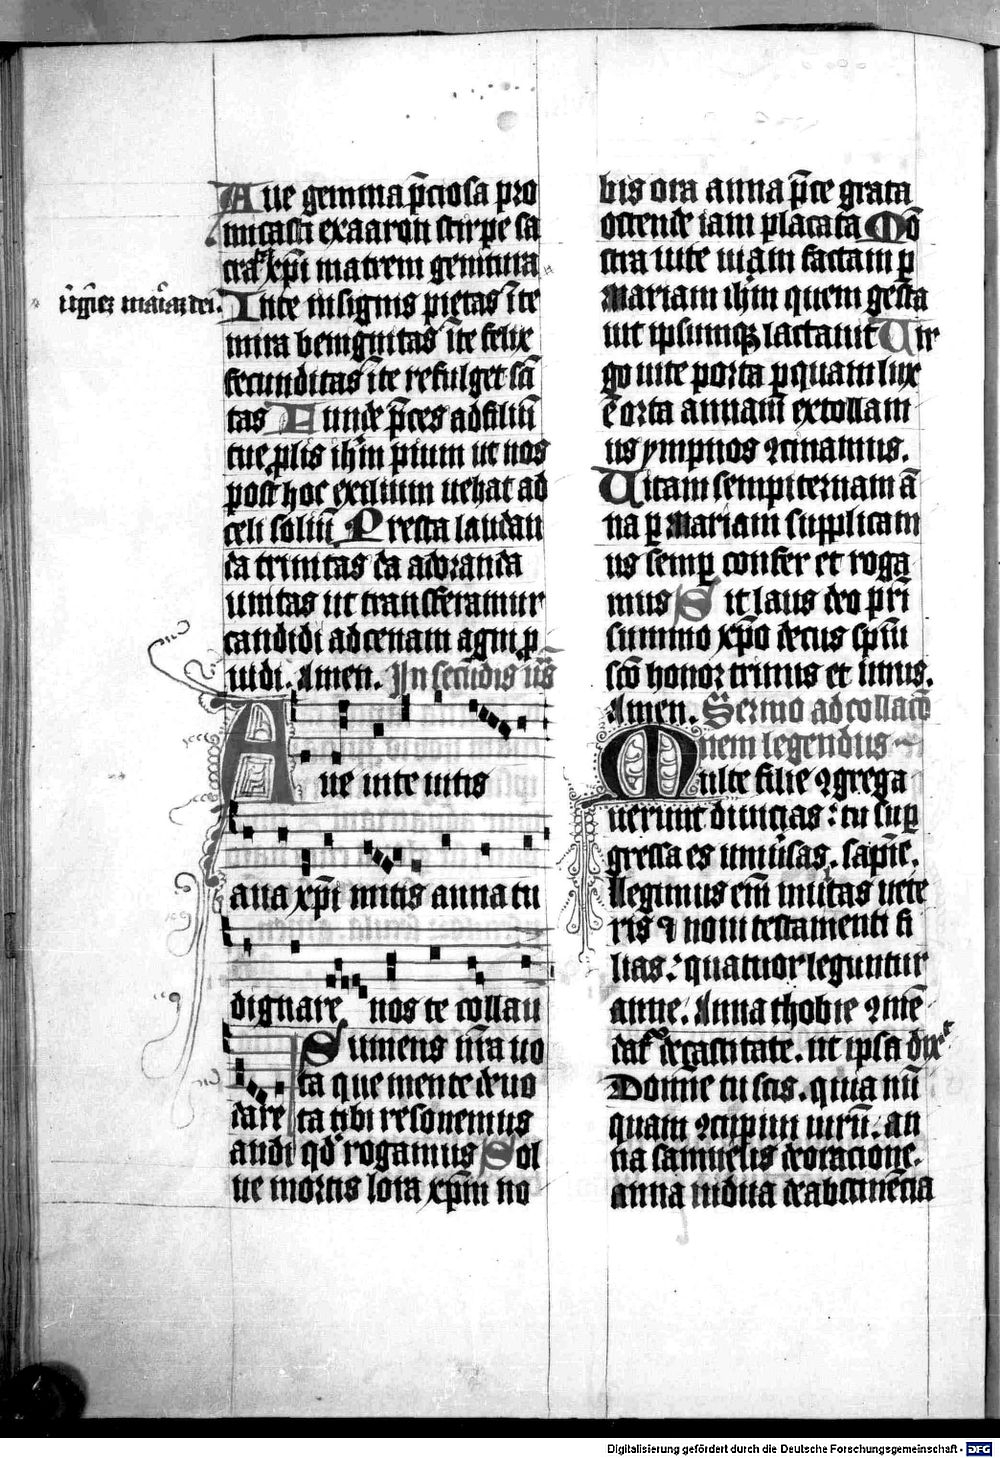 Aue gemma p̄ciosa pro
micasti exaaron stirpe sa
cra xp̄i matrem genitura
u̓gi̓es mar̓is dei.
Inte insignis pietas īte
mira benignitas īte felix
fecunditas īte refulget scā
tas Funde p̄ces ad filiū
tue ꝓlis ih̄m pium ut nos
post hoc exilium uehat ad
celi soliū Presta laudan
da trinitas da adoranda
unitas ut transferamur
candidi ad cenam agni ꝓ
uidi. Amen. In secūdis ūs̄
Aue inte uitis
aua xp̄i mitis anna tu
dignare nos te collau
dare
Sumens nr̄a uo
ta que mente deuo
ta tibi resonemus
audi qd̓ rogamus Sol
ue mortis lora xp̄m no
bis ora anna p̄ce grata
ostende iam placata Mō
stra iute uiam factam ꝑ
Mariam ih̄m quem gesta
uit ipsumqꝫ lactauit Vir
go uite porta ꝑquam lux
ē orta annam extollam
us ympnos ꝯcinamus.
Vitam sempiternam ā
na ꝑ Mariam supplicam
us semꝑ confer et roga
mus Sit laus deo pr̄i
summo xp̄o decus sp̄ui
scō honor trinus et unus.
Amen. Sermo ad collacō
nem legendus
Multe filie ꝯgrega
uerunt diuicias: tu suꝑ
gressa es uniu̓sas. sapīe.
Legimus em̄ mu̓tas vete
ris ⁊ noui testamenti fi
lias: quatuor leguntur
anne. Anna thobie ꝯmē
dat᷑ de castitate. ut ipsa dix̓
Domine tu scis. quia nū
quam ꝯcupiui uirū. an
na samuelis de oracione.
anna uidua de abstinēcia
Digitalisierung gefördert durch die Deutsche Forschungsgemeinschaft - DFG